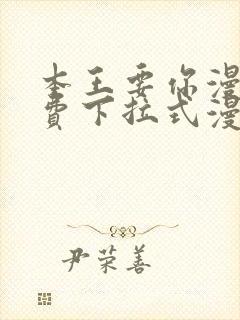 本王要你漫
费下拉式漫
尹荣善